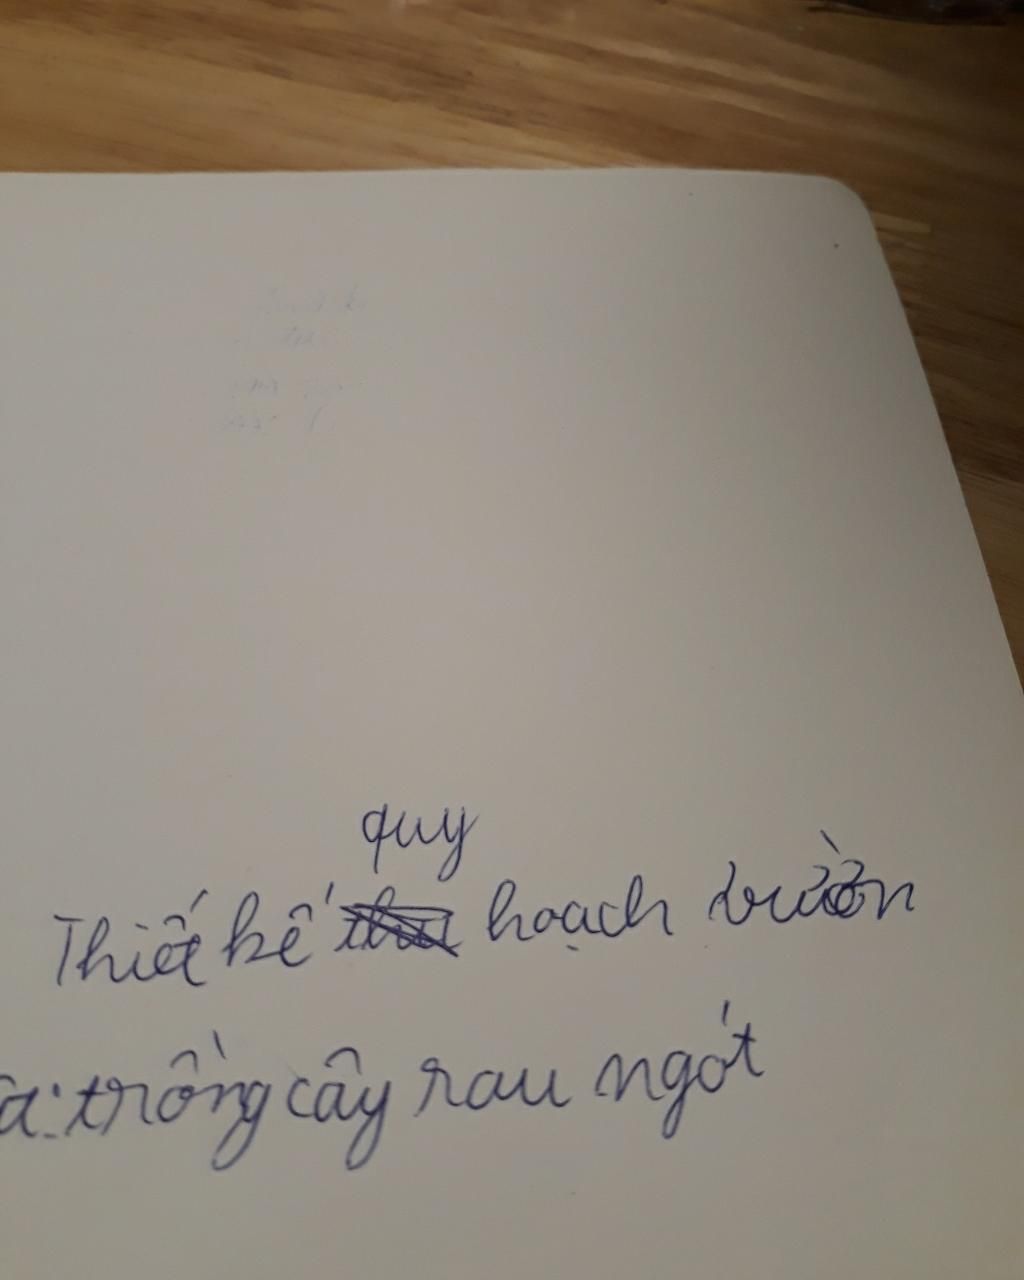 quy
Thiết kế hoạch vườn
trồng cây rau ngót